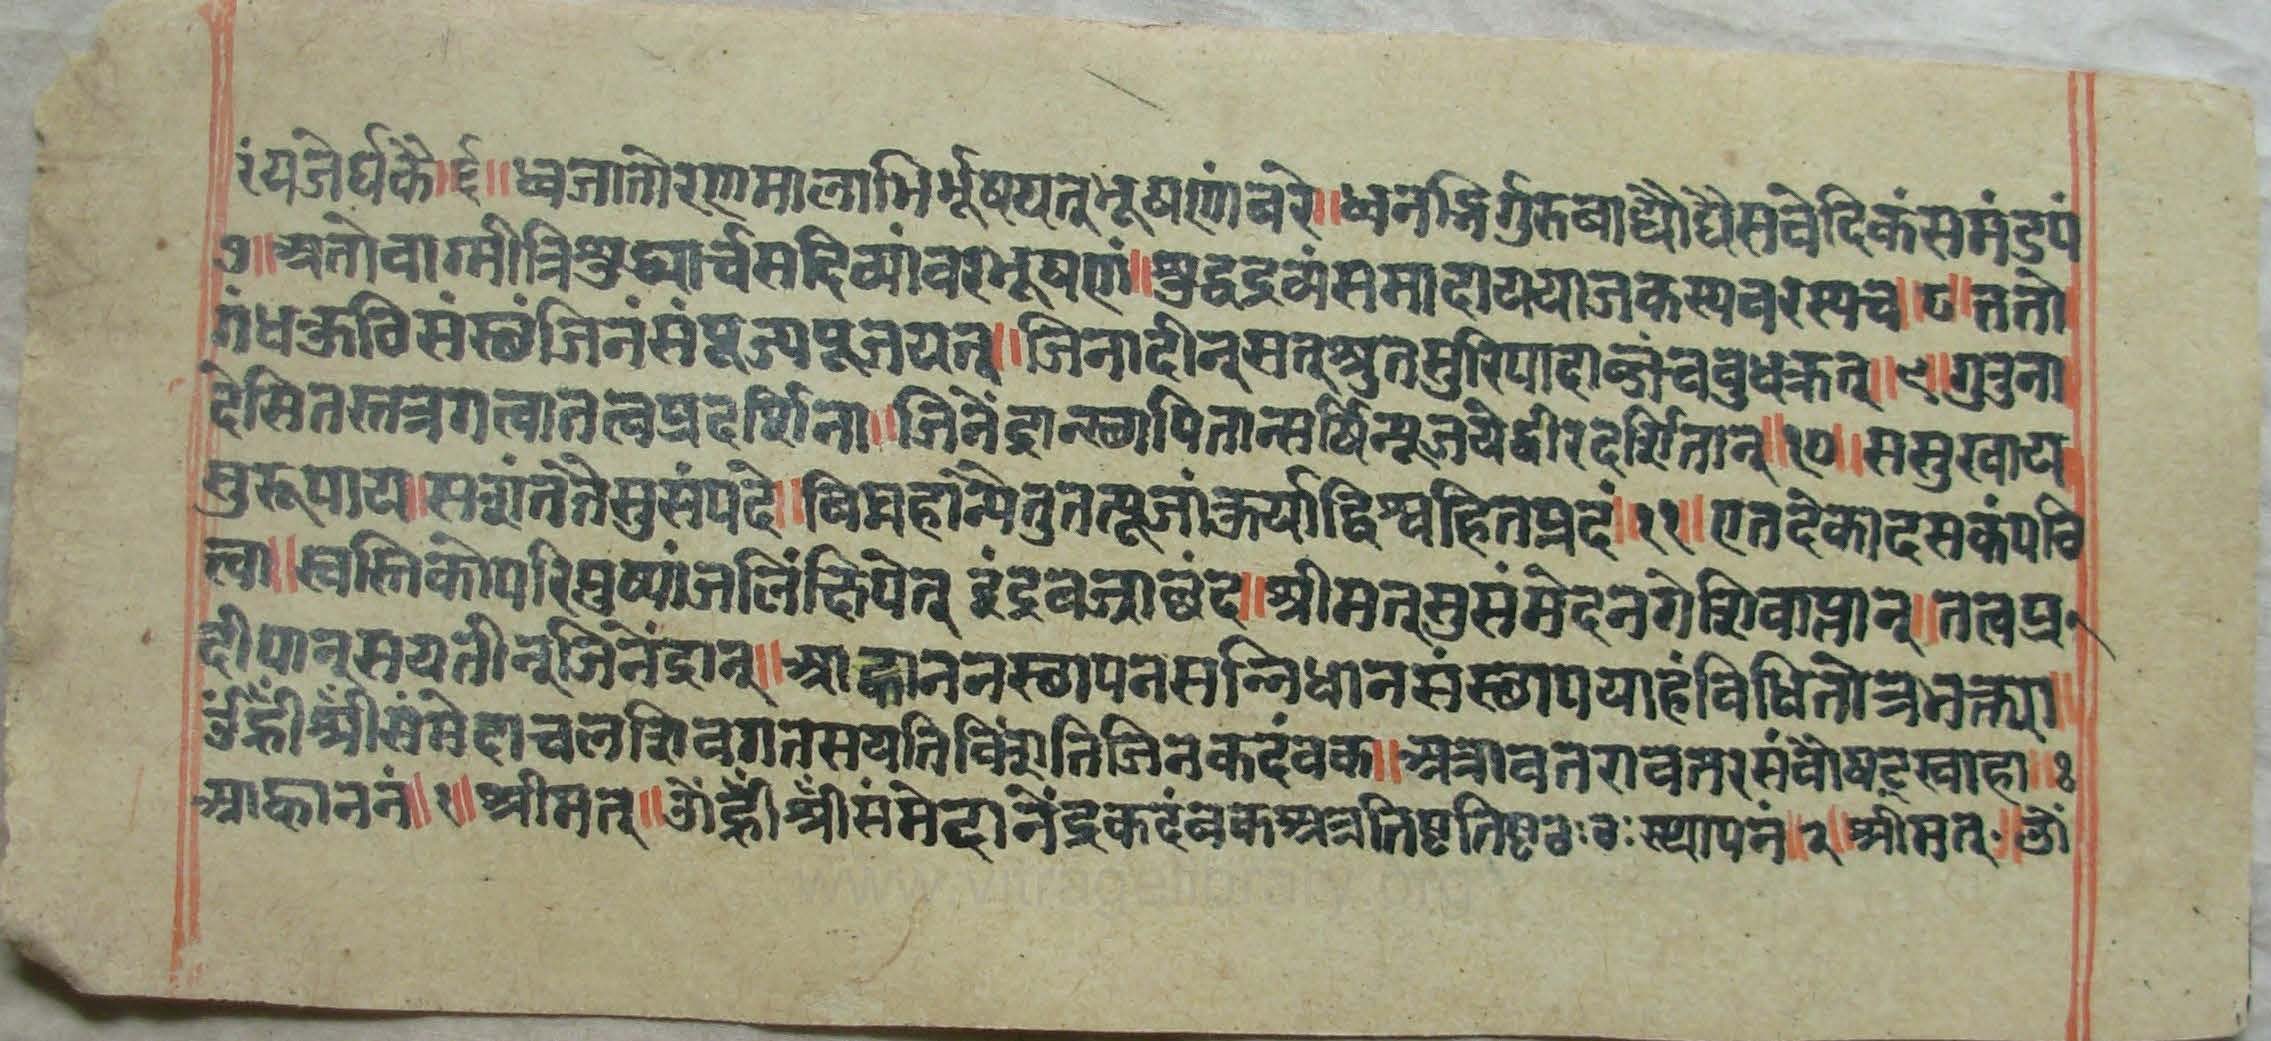 रंयजेर्घकै ६॥ ध्वजातोरणमालाभिर्भूषयत्भूषणांबरे॥ ध्वनद्भिर्गुरुबाद्यौघैसवेदिकंसमंडपं
७॥ अतोवाग्मीत्रिशुद्ध्यार्चमदिव्यांवरभूषणं॥ शुद्धद्रव्यंसमादाययाजकस्यवरस्यच॥८॥ ततो
गंधक्रुटिसंस्छंजिनंसंपूज्यपूजयत्॥ जिनादीन्सत्श्रुतसुरिपादाब्जंचबुधक्रत्॥९॥ गुरुना
देसितस्तत्रगत्वातत्वप्रदर्शिना॥ जिनेंद्रान्स्छापितान्सर्षिन्पूजयेद्वीरदर्शितान्॥१०॥ससुखाय
सुरूपाय॥सत्शांतेतैसुसंपदे॥ विघ्नहान्यैतुतत्पूजांक्रर्याद्विश्वहितप्रदं॥११॥ एतदेकादसकंपठि
त्वा॥ स्वस्तिकोपरिपुष्पांजलिंक्षिपेत् इंद्रवज्राछंद॥ श्रीमत्सुसंमेदनगेशिवाप्तान्॥तत्वप्र
दीपान्सयतीन्जिनेंद्रान्॥ आह्वाननस्छापनसन्निधानसंस्छापयाहंविधितोत्रभक्त्या॥
उँह्रीँश्रीँसंमेदाचलशिवगतसयतिविंशतिजिनकदंवक॥ अत्रावतरावतरसंवौषट्स्वाहा॥
आह्वाननं॥१॥ श्रीमत्॥ ओंह्रीँश्रीँसंमेदानेंद्रकदंबकअत्रतिष्टतिष्टठःठःस्थापनं॥२॥श्रीमत्॥ओं
www.vitragelibrary.org